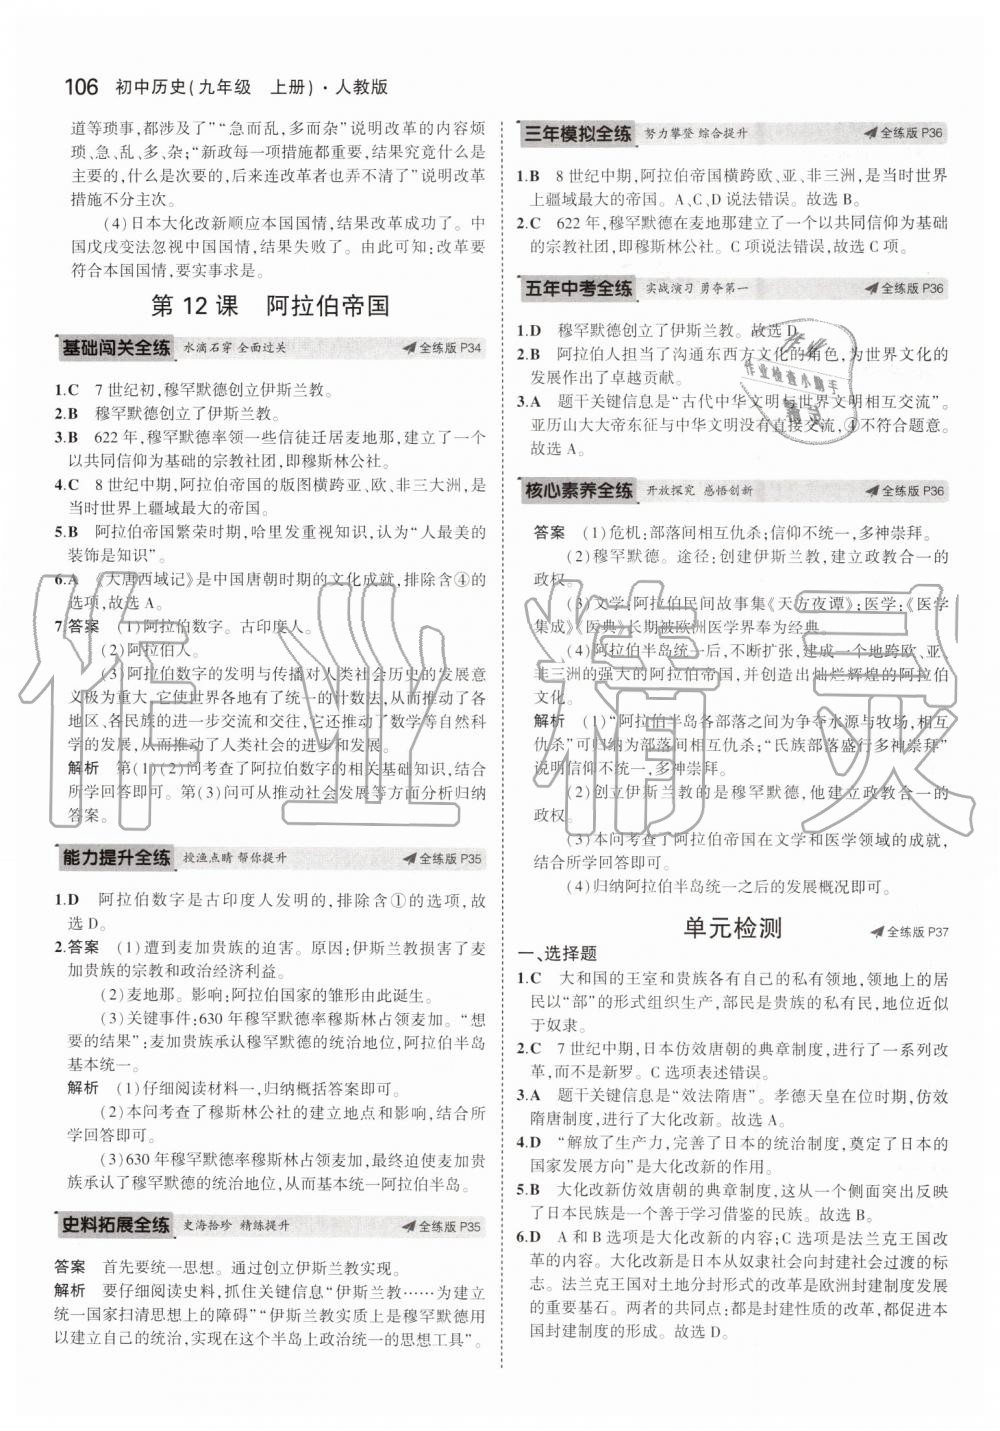 106 初中历史(九年级 上册)·人教版
道等琐事,都涉及了”“急而乱,多而杂”说明改革的内容烦
琐、急、乱、多、杂;“新政每一项措施都重要,结果究竟什么是
主要的,什么是次要的,后来连改革者也弄不清了”说明改革
措施不分主次。
(4)日本大化改新顺应本国国情,结果改革成功了。中
国戊戌变法忽视中国国情,结果失败了。由此可知:改革要
符合本国国情,要实事求是。
第 12 课 阿拉伯帝国
基础闯关全练 水滴石穿 全面过关 全练版 P34
1.C 7 世纪初,穆罕默德创立伊斯兰教。
2.B 穆罕默德创立了伊斯兰教。
3.B 622 年,穆罕默德率领一些信徒迁居麦地那,建立了一个
以共同信仰为基础的宗教社团,即穆斯林公社。
4.C 8 世纪中期,阿拉伯帝国的版图横跨亚、欧、非三大洲,是
当时世界上疆域最大的帝国。
5.B 阿拉伯帝国繁荣时期,哈里发重视知识,认为“人最美的
装饰是知识”。
6.A 《大唐西域记》是中国唐朝时期的文化成就,排除含④的
选项,故选 A。
7.答案 (1)阿拉伯数字。古印度人。
(2)阿拉伯人。
(3)阿拉伯数字的发明与传播对人类社会历史的发展意
义极为重大,它使世界各地有了统一的计数法,从而推动了各
地区、各民族的进一步交流和交往;它还推动了数学等自然科
学的发展,从而推动了人类社会的进步和发展。
解析 第(1)(2)问考查了阿拉伯数字的相关基础知识,结合
所学回答即可。第(3)问可从推动社会发展等方面分析归纳
答案。
能力提升全练 授渔点睛 帮你提升 全练版 P35
1.D 阿拉伯数字是古印度人发明的,排除含①的选项,故
选 D。
2.答案 (1)遭到麦加贵族的迫害。原因:伊斯兰教损害了麦
加贵族的宗教和政治经济利益。
(2)麦地那。影响:阿拉伯国家的雏形由此诞生。
(3)关键事件:630 年穆罕默德率穆斯林占领麦加。“想
要的结果”:麦加贵族承认了穆罕默德的统治地位,阿拉伯半岛
基本统一。
解析 (1)仔细阅读材料一,归纳概括答案即可。
(2)本问考查了穆斯林公社的建立地点和影响,结合所
学回答即可。
(3)630 年穆罕默德率穆斯林占领麦加,最终迫使麦加贵
族承认了穆罕默德的统治地位,从而基本统一阿拉伯半岛。
史料拓展全练 史海拾珍 精练提升 全练版 P35
答案 首先要统一思想。通过创立伊斯兰教实现。
解析 要仔细阅读史料,抓住关键信息“伊斯兰教……为建立
统一国家扫清思想上的障碍”“伊斯兰教实质上是穆罕默德用
以建立自己的统治,实现在这个半岛上政治统一的思想工具”。
三年模拟全练 努力攀登 综合提升 全练版 P36
1.B 8 世纪中期,阿拉伯帝国横跨欧、亚、非三洲,是当时世界
上疆域最大的帝国。A、C、D 说法错误。故选 B。
2.C 622 年,穆罕默德在麦地那建立了一个以共同信仰为基础
的宗教社团,即穆斯林公社。C 项说法错误,故选 C 项。
五年中考全练 实战演习 勇夺第一 全练版 P36
1.D 穆罕默德创立了伊斯兰教。故选 D。
2.B 阿拉伯人担当了沟通东西方文化的角色,为世界文化的
发展作出了卓越贡献。
3.A 题干关键信息是“古代中华文明与世界文明相互交流”。
亚历山大大帝东征与中华文明没有直接交流,④不符合题意。
故选 A。
核心素养全练 开放探究 感悟创新 全练版 P36
答案 (1)危机:部落间相互仇杀;信仰不统一,多神崇拜。
(2)穆罕默德。途径:创建伊斯兰教,建立政教合一的
政权。
(3)文学:阿拉伯民间故事集《天方夜谭》;医学:《医学
集成》《医典》长期被欧洲医学界奉为经典。
(4)阿拉伯半岛统一后,不断扩张,建成一个地跨欧、亚、
非三洲的强大的阿拉伯帝国,并创造出灿烂辉煌的阿拉伯
文化。
解析 (1)“阿拉伯半岛各部落之间为争夺水源与牧场,相互
仇杀”可归纳为部落间相互仇杀;“氏族部落盛行多神崇拜”
说明信仰不统一,多神崇拜。
(2)创立伊斯兰教的是穆罕默德,他建立政教合一的
政权。
(3)本问考查了阿拉伯帝国在文学和医学领域的成就,
结合所学回答即可。
(4)归纳阿拉伯半岛统一之后的发展概况即可。
单元检测 全练版 P37
一、选择题
1.C 大和国的王室和贵族各有自己的私有领地,领地上的居
民以“部”的形式组织生产,部民是贵族的私有民,地位近似
于奴隶。
2.C 7 世纪中期,日本仿效唐朝的典章制度,进行了一系列改
革,而不是新罗。C 选项表述错误。
3.A 题干关键信息是“效法隋唐”。孝德天皇在位时期,仿效
隋唐制度,进行了大化改新。故选 A。
4.D “解放了生产力,完善了日本的统治制度,奠定了日本的
国家发展方向”是大化改新的作用。
5.B 大化改新仿效唐朝的典章制度,这从一个侧面突出反映
了日本民族是一个善于学习借鉴的民族。
6.D A 和 B 选项是大化改新的内容,C 选项是法兰克王国改
革的内容。大化改新是日本从奴隶社会向封建社会过渡的标
志。法兰克王国对土地分封形式的改革是欧洲封建制度发展
的重要基石。两者的共同点:都是封建性质的改革,都促进本
国封建制度的形成。故选 D。
作业精灵
作业
作业检查小助手
精灵